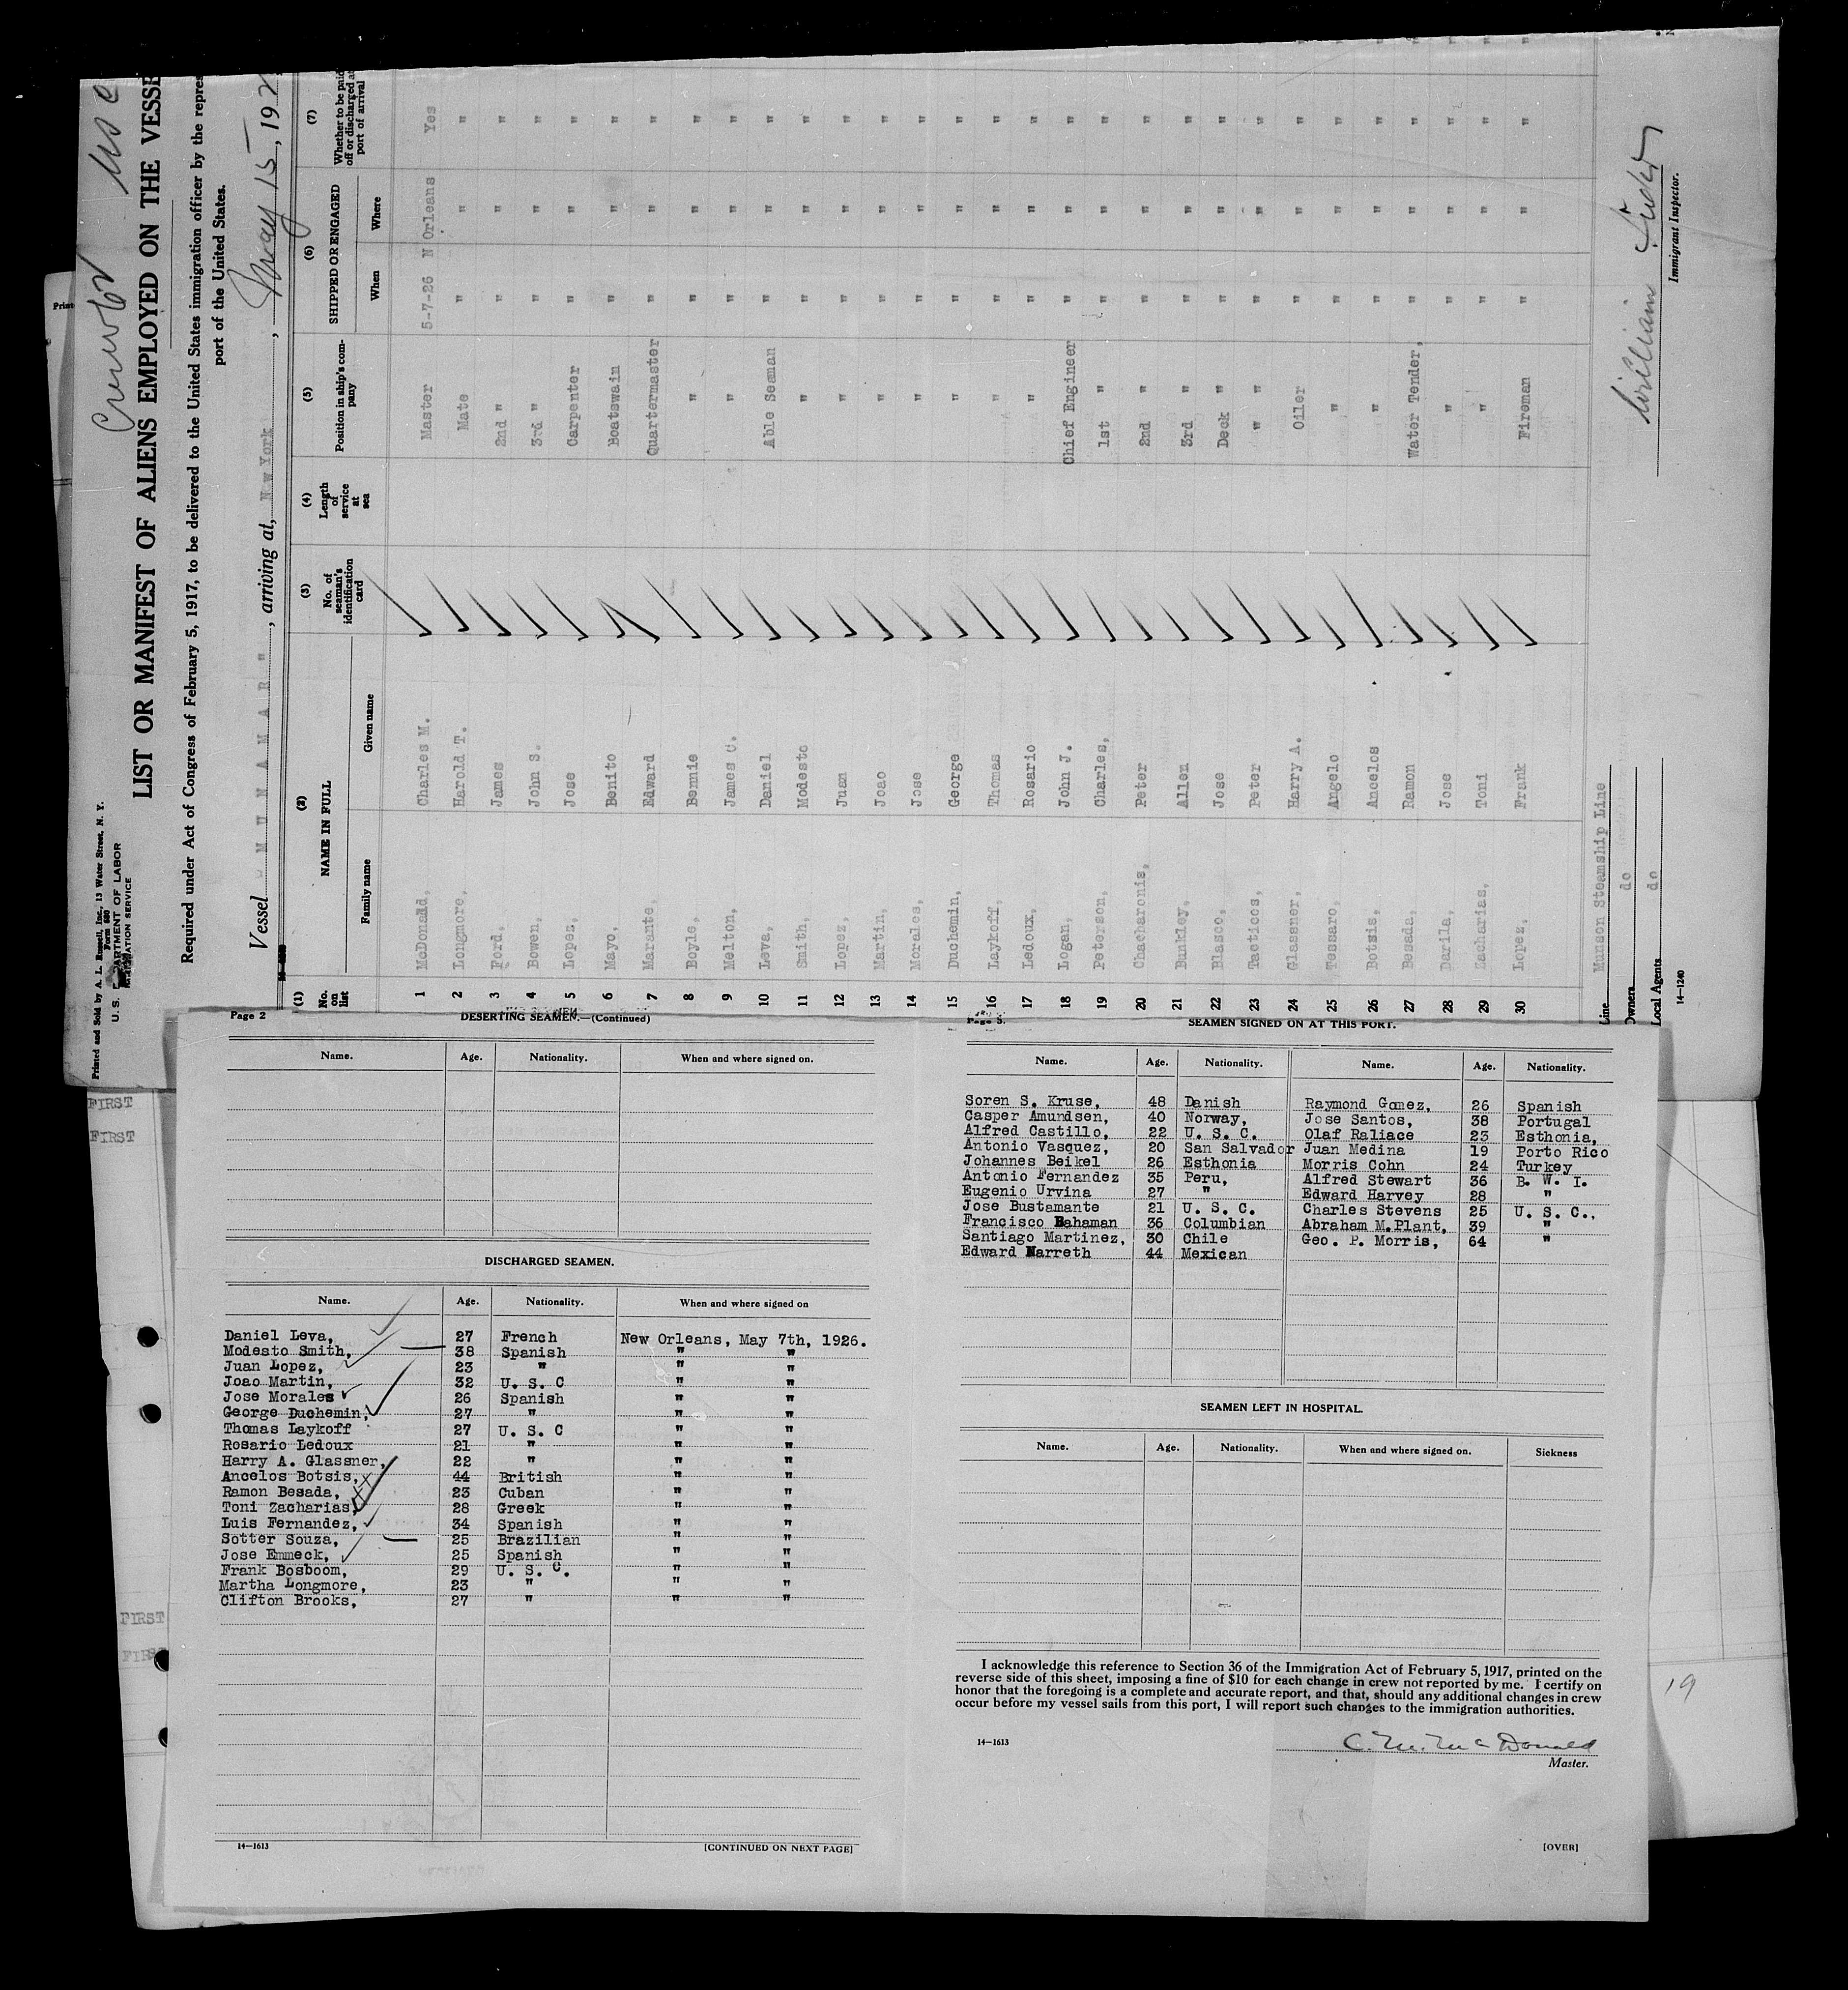 Printed and Sold by A. L. Russell, Inc., 13 Water Street, N. Y.
Form 680
U. S. DEPARTMENT OF LABOR
IMMIGRATION SERVICE
LIST OR MANIFEST OF ALIENS EMPLOYED ON THE VESSE
Required under Act of Congress of February 5, 1917, to be delivered to the United States immigration officer by the repres
port of the United States.
Vessel " M U N A M A R ", arriving at, New York, May 15, 192
(1) No. on list
(2) NAME IN FULL
Family name Given name
(3) No. of seaman's identification card
(4) Length of service at sea
(5) Position in ship's company
(6) SHIPPED OR ENGAGED
When Where
(7) Whether to be paid off or discharged at port of arrival
1 McDonald, Charles M. Master 5-7-26 N Orleans Yes
2 Longmore, Harold T. Mate " " "
3 Ford, James 2nd " " " "
4 Bowen, John S. 3rd " " " "
5 Lopez, Jose Carpenter " " "
6 Mayo, Benito Boatswain " " "
7 Marante, Edward Quartermaster " " "
8 Boyle, Bennie " " " "
9 Melton, James C. " " " "
10 Leva, Daniel Able Seaman " " "
11 Smith, Modesto " " " "
12 Lopez, Juan " " " "
13 Martin, Joao " " " "
14 Morales, Jose " " " "
15 Duchemin, George " " " "
16 Laykoff, Thomas " " " "
17 Ledoux, Rosario " " " "
18 Logan, John J. Chief Engineer " " "
19 Peterson, Charles, 1st " " " "
20 Chacharonis, Peter 2nd " " " "
21 Bunkley, Allen 3rd " " " "
22 Blasco, Jose Deck " " " "
23 Tacticos, Peter " " " " "
24 Glassner, Harry A. Oiler " " "
25 Tessaro, Angelo " " " "
26 Botsis, Ancelos " " " "
27 Besada, Ramon Water Tender, " " "
28 Darila, Jose " " " "
29 Zacharias, Toni " " " "
30 Lopez, Frank Fireman " " "
Line Munson Steamship Line
Owners do
Local Agents do
14—1240
William
Immigrant Inspector.
FIRST
FIRST
FIRST
FIRST
19
Page 2
DESERTING SEAMEN.—(Continued)
Name. Age. Nationality. When and where signed on.
DISCHARGED SEAMEN.
Name. Age. Nationality. When and where signed on
Daniel Leva, 27 French New Orleans, May 7th, 1926.
Modesto Smith, 38 Spanish " "
Juan Lopez, 23 " " "
Joao Martin, 32 U. S. C " "
Jose Morales 26 Spanish " "
George Duchemin, 27 " " "
Thomas Laykoff 27 U. S. C " "
Rosario Ledoux 21 " " "
Harry A. Glassner, 22 " " "
Ancelos Botsis, 44 British " "
Ramon Besada, 23 Cuban " "
Toni Zacharias, 28 Greek " "
Luis Fernandez, 34 Spanish " "
Sotter Souza, 25 Brazilian " "
Jose Emmeck, 25 Spanish " "
Frank Bosboom, 29 U. S. C. " "
Martha Longmore, 23 " " "
Clifton Brooks, 27 " " "
14—1613
[CONTINUED ON NEXT PAGE]
SEAMEN SIGNED ON AT THIS PORT.
Name. Age. Nationality. Name. Age. Nationality.
Soren S. Kruse, 48 Danish Raymond Gomez, 26 Spanish
Casper Amundsen, 40 Norway, Jose Santos, 38 Portugal
Alfred Castillo, 22 U. S. C. Olaf Raliace 23 Esthonia,
Antonio Vasquez, 20 San Salvador Juan Medina 19 Porto Rico
Johannes Beikel 26 Esthonia Morris Cohn 24 Turkey
Antonio Fernandez 35 Peru, Alfred Stewart 36 B. W. I.
Eugenio Urvina 27 " Edward Harvey 28 "
Jose Bustamante 21 U. S. C. Charles Stevens 25 U. S. C.,
Francisco Bahaman 36 Columbian Abraham M.Plant, 39 "
Santiago Martinez, 30 Chile Geo. P. Morris, 64 "
Edward Narreth 44 Mexican
SEAMEN LEFT IN HOSPITAL.
Name. Age. Nationality. When and where signed on. Sickness
I acknowledge this reference to Section 36 of the Immigration Act of February 5, 1917, printed on the
reverse side of this sheet, imposing a fine of $10 for each change in crew not reported by me. I certify on
honor that the foregoing is a complete and accurate report, and that, should any additional changes in crew
occur before my vessel sails from this port, I will report such changes to the immigration authorities.
14—1613
C. M. McDonald
Master.
[OVER]